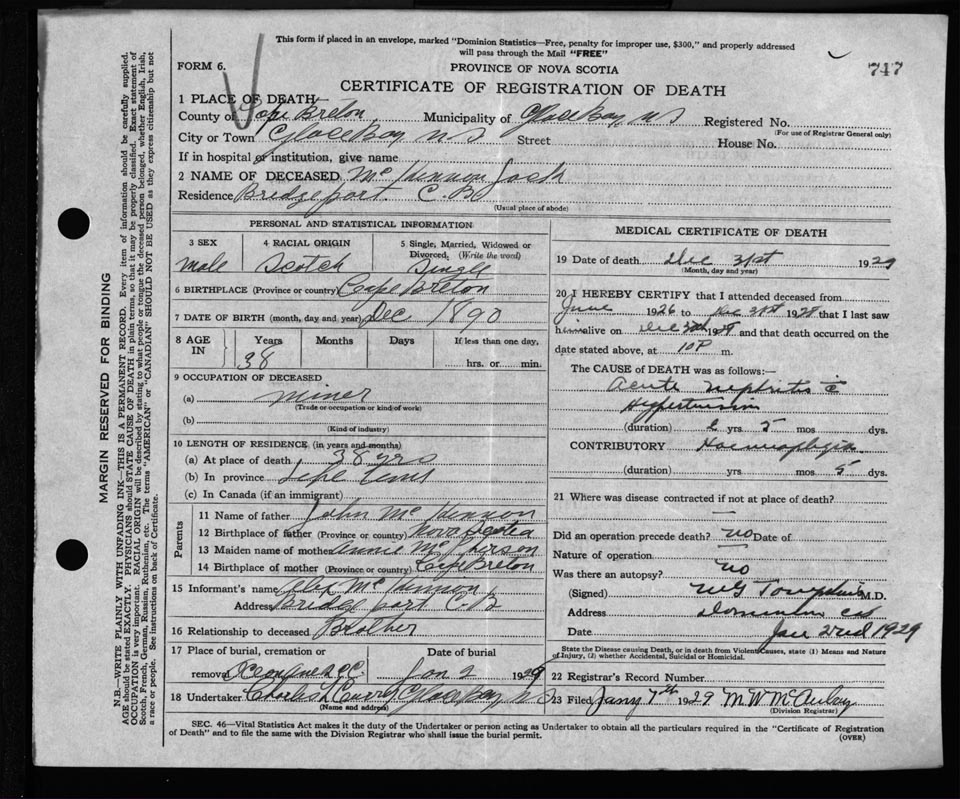 This form if placed in an envelope, marked "Dominion Statistics—Free, penalty for improper use, $300," and properly addressed
will pass through the Mail "FREE"
747
FORM 6.
PROVINCE OF NOVA SCOTIA
CERTIFICATE OF REGISTRATION OF DEATH
1 PLACE OF DEATH
County of Cape Breton Municipality of Glace Bay, N S Registered No.
(For use of Registrar General only)
City or Town Glace Bay N S Street House No.
If in hospital or institution, give name
2 NAME OF DECEASED McKinnon Jack
Residence Bridgeport. C. B.
(Usual place of abode)
PERSONAL AND STATISTICAL INFORMATION
3 SEX 4 RACIAL ORIGIN 5 Single, Married, Widowed or Divorced, (Write the word)
male Scotch Single
6 BIRTHPLACE (Province or country) Cape Breton
7 DATE OF BIRTH (month, day and year) Dec 1890
8 AGE IN Years Months Days If less than one day,
38 hrs. or min.
9 OCCUPATION OF DECEASED
(a) miner
(Trade or occupation or kind of work)
(b)
(Kind of industry)
10 LENGTH OF RESIDENCE (in years and months)
(a) At place of death 38 yrs
(b) In province Life time
(c) In Canada (if an immigrant)
Parents
11 Name of father John McKinnon
12 Birthplace of father (Province or country) Nova Scotia
13 Maiden name of mother Annie
14 Birthplace of mother (Province or country) Cape Breton
15 Informant's name Alex McKinnon
Address Bridgeport C.B
16 Relationship to deceased Brother
17 Place of burial, cremation or removal Date of burial
Jan 2 1929
18 Undertaker Charles Glace Bay, N S
(Name and address)
MEDICAL CERTIFICATE OF DEATH
19 Date of death Dec 31st 1929
(Month, day and year)
20 I HEREBY CERTIFY that I attended deceased from
June 1926 to Dec 31st 1928 that I last saw
him alive on Dec and that death occurred on
date stated above, at 10 P m.
The CAUSE of DEATH was as follows:—
Acute Nephritis c̄
Hypertension
(duration) yrs 5 mos dys.
CONTRIBUTORY
(duration) yrs mos 5 dys.
21 Where was disease contracted if not at place of death?
Did an operation precede death? no Date of
Nature of operation
Was there an autopsy? no
(Signed) M.D.
Address Dominion C B
Date Jan 2nd 1929
State the Disease causing Death, or in death from Violent Causes, state (1) Means and Nature
of Injury, (2) whether Accidental, Suicidal or Homicidal.
22 Registrar's Record Number
23 Filed Jany 7th 1929 M W McAulay
(Division Registrar)
SEC. 46—Vital Statistics Act makes it the duty of the Undertaker or person acting as Undertaker to obtain all the particulars required in the "Certificate of Registration
of Death" and to file the same with the Division Registrar who shall issue the burial permit.
(OVER)
MARGIN RESERVED FOR BINDING
N.B.—WRITE PLAINLY WITH UNFADING INK—THIS IS A PERMANENT RECORD. Every item of information should be carefully supplied.
AGE should be stated EXACTLY. PHYSICIANS should STATE CAUSE OF DEATH in plain terms, so that it may be properly classified. Exact statement of
OCCUPATION is very important. RACIAL ORIGIN will be described by stating to what people or tongue the deceased person belonged, whether English, Irish,
Scotch, French, German, Russian, Ruthenian, etc. The terms "AMERICAN" or "CANADIAN" SHOULD NOT BE USED as they express citizenship but not
a race or people. See instructions on back of Certificate.